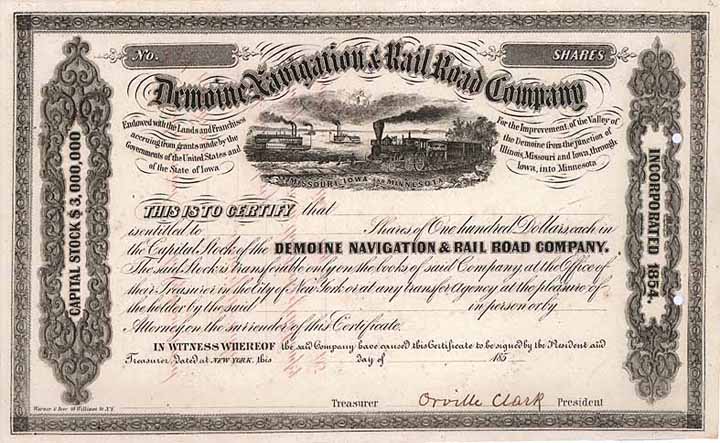 No.
SHARES
Demoine Navigation & Rail Road Company
Endowed with the Lands and Franchises
accruing from grants made by the
Governments of the United States and
of the State of Iowa
For the Improvement of the Valley of
the Demoine from the junction of
Illinois, Missouri and Iowa, through
Iowa, into Minnesota
MISSOURI, IOWA AND MINNESOTA
CAPITAL STOCK $ 3,000,000
INCORPORATED 1854.
THIS IS TO CERTIFY that
is entitled to Shares of One hundred Dollars, each in
the Capital Stock of the DEMOINE NAVIGATION & RAIL ROAD COMPANY.
The said Stock is transferable only on the books of said Company at the Office of
their Treasurer in the City of New York or at any transfer Agency at the pleasure of
the holder by the said in person or by
Attorney on the surrender of this Certificate.
IN WITNESS WHEREOF the said Company have caused this Certificate to be signed by the President and
Treasurer, Dated at NEW YORK, this day of 185
Treasurer Orville Clark President